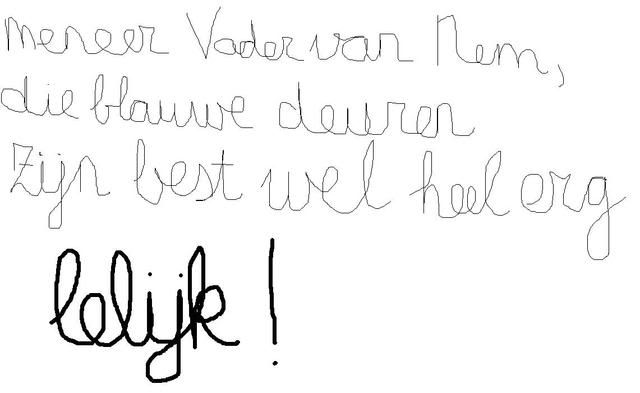 meneer Vader van Nem,
die blauwe deuren
Zijn best wel heel erg
lelijk!